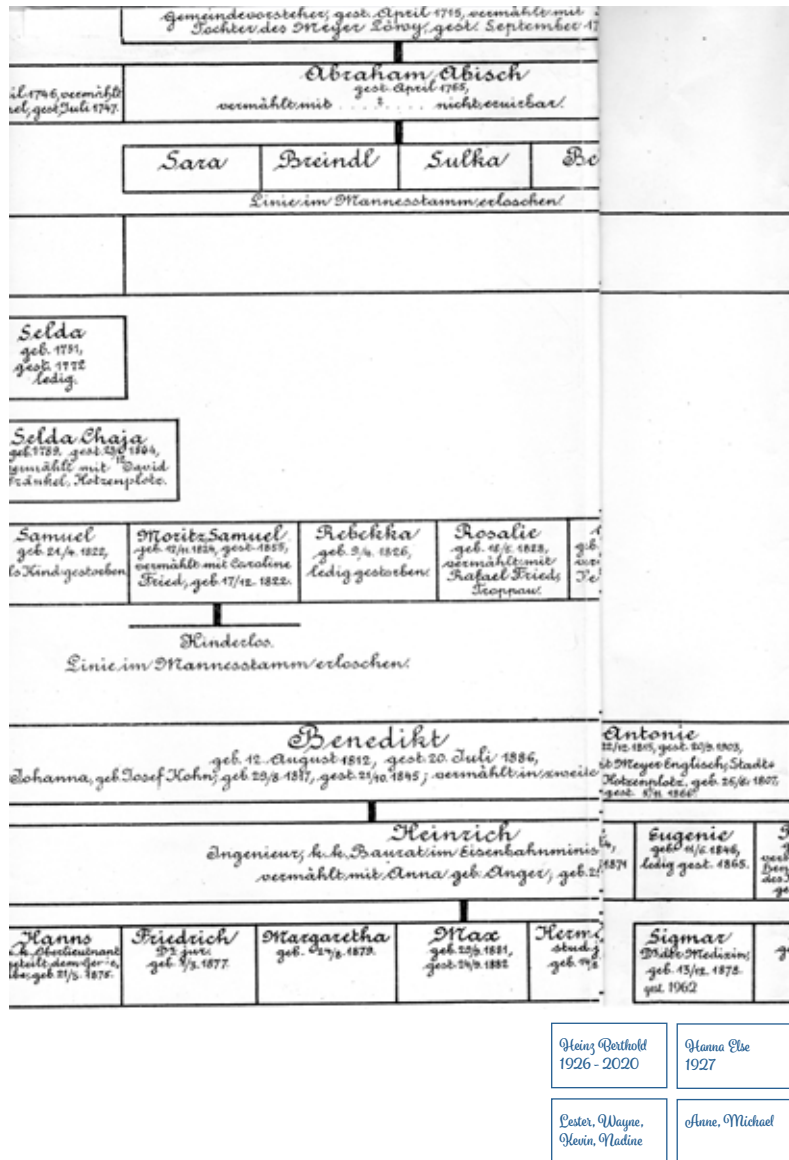 Gemeindevorsteher, gest. April 1715, vermählt mit
Tochter des Meyer Löwy, gest. September 17
il 1746, vermählt
el, gest. Juli 1747.
Abraham Abisch
gest. April 1765,
vermählt mit . . . ? . . . . nicht eruirbar.
Sara
Breindl
Sulka
Be
Linie im Mannesstamm erloschen.
Selda
geb. 1751,
gest. 1772
ledig.
Selda Chaja
geb. 1789. gest. 1864,
vermählt mit David
Fränkel, Hotzenplotz.
Samuel
geb. 21/4. 1822,
ls Kind gestorben
Moritz Samuel
geb. 1824, gest. 1855,
vermählt mit Caroline
Fried, geb. 17/12. 1822.
Rebekka
geb. 9/4. 1826,
ledig gestorben.
Rosalie
geb. 1828,
vermählt mit
Rafael Fried,
Troppau.
Kinderlos.
Linie im Mannesstamm erloschen.
Benedikt
geb. 12. August 1812, gest. 20. Juli 1886,
Johanna, geb. Josef Kohn, geb. 29/8. 1817, gest. 21/10. 1845; vermählt in zweite
Antonie
22/12. 1815, gest. 20/9. 1903,
it Meyer Englisch, Stadt-
Hotzenplotz, geb. 25/6. 1807,
gest. 1866.
Heinrich
Ingenieur, k. k. Baurat im Eisenbahnminis
vermählt mit Anna geb. Anger, geb. 2
1871
Eugenie
geb. 11/6. 1846,
ledig gest. 1865.
Hanns
k. k. Oberlieutnant
geb. 21/5. 1875.
Friedrich
Dr. jur.
geb. 1877.
Margaretha
geb. 24/8. 1879.
Max
geb. 29/9. 1881,
gest. 24/9. 1882
Herm
stud. j
geb. 14/8
Sigmar
Dr. der Medizin,
geb. 13/12. 1878.
gest. 1962
Heinz Berthold
1926 - 2020
Hanna Else
1927
Lester, Wayne,
Kevin, Nadine
Anne, Michael